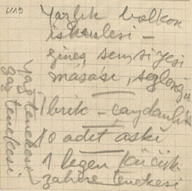 Yazlık balkon
iskemlesi –
güneş şemsiyesi
masası, şezlong
1 ibrik – çaydanlık
10 adet askı
1 leğen küçük
zahire tenekesi
yağ tenekesi
gaz tenekesi